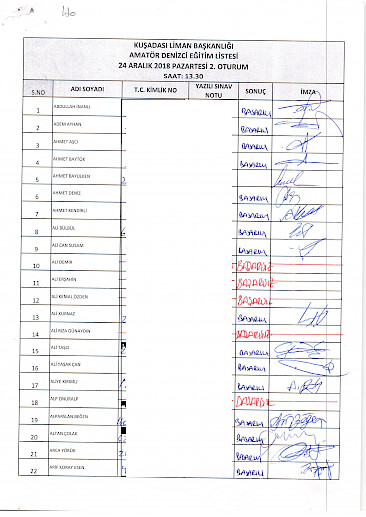 KUŞADASI LİMAN BAŞKANLIĞI
AMATÖR DENİZCİ EĞİTİM LİSTESİ
24 ARALIK 2018 PAZARTESİ 2. OTURUM
SAAT: 13.30
S.NO ADI SOYADI T.C. KİMLİK NO YAZILI SINAV NOTU SONUÇ İMZA
1 ABDULLAH İNANLI BAŞARILI
2 ADEM AYHAN BAŞARILI
3 AHMET AŞCI BAŞARILI
4 AHMET BAYTOK BAŞARILI
5 AHMET BAYÜLKEN 2
6 AHMET DENİZ BAŞARILI
7 AHMET KENDİRLİ BAŞARILI
8 ALİ GÜLGÜL BAŞARILI
9 ALİ CAN SUSAM BAŞARILI
10 ALİ DEMİR BAŞARISIZ
11 ALİ ERŞAHİN BAŞARISIZ
12 ALİ KEMAL ÖZDEN BAŞARISIZ
13 ALİ KURNAZ 2 BAŞARILI
14 ALİ RIZA GÜNAYDIN BAŞARISIZ
15 ALİ TAŞCI BAŞARILI
16 ALİ YAŞAR ÇAN BAŞARILI
17 ALİYE KERİMLİ BAŞARILI
18 ALP ONURALP BAŞARISIZ
19 ALPARSLAN BAŞARILI
20 ALTAN ÇOLAK BAŞARILI
21 ARCA YÖRÜK BAŞARILI
22 ARİF KORAY ESEN BAŞARILI